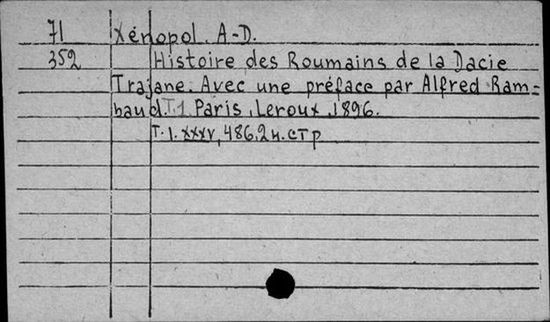 71 Xénopol. A-D.
352 Histoire des Roumains de la Dacie
Trajane. Avec une préface par Alfred Ram=
baud. T.1. Paris, Leroux, 1896.
T.1. XXXV, 486, 2 н. стр